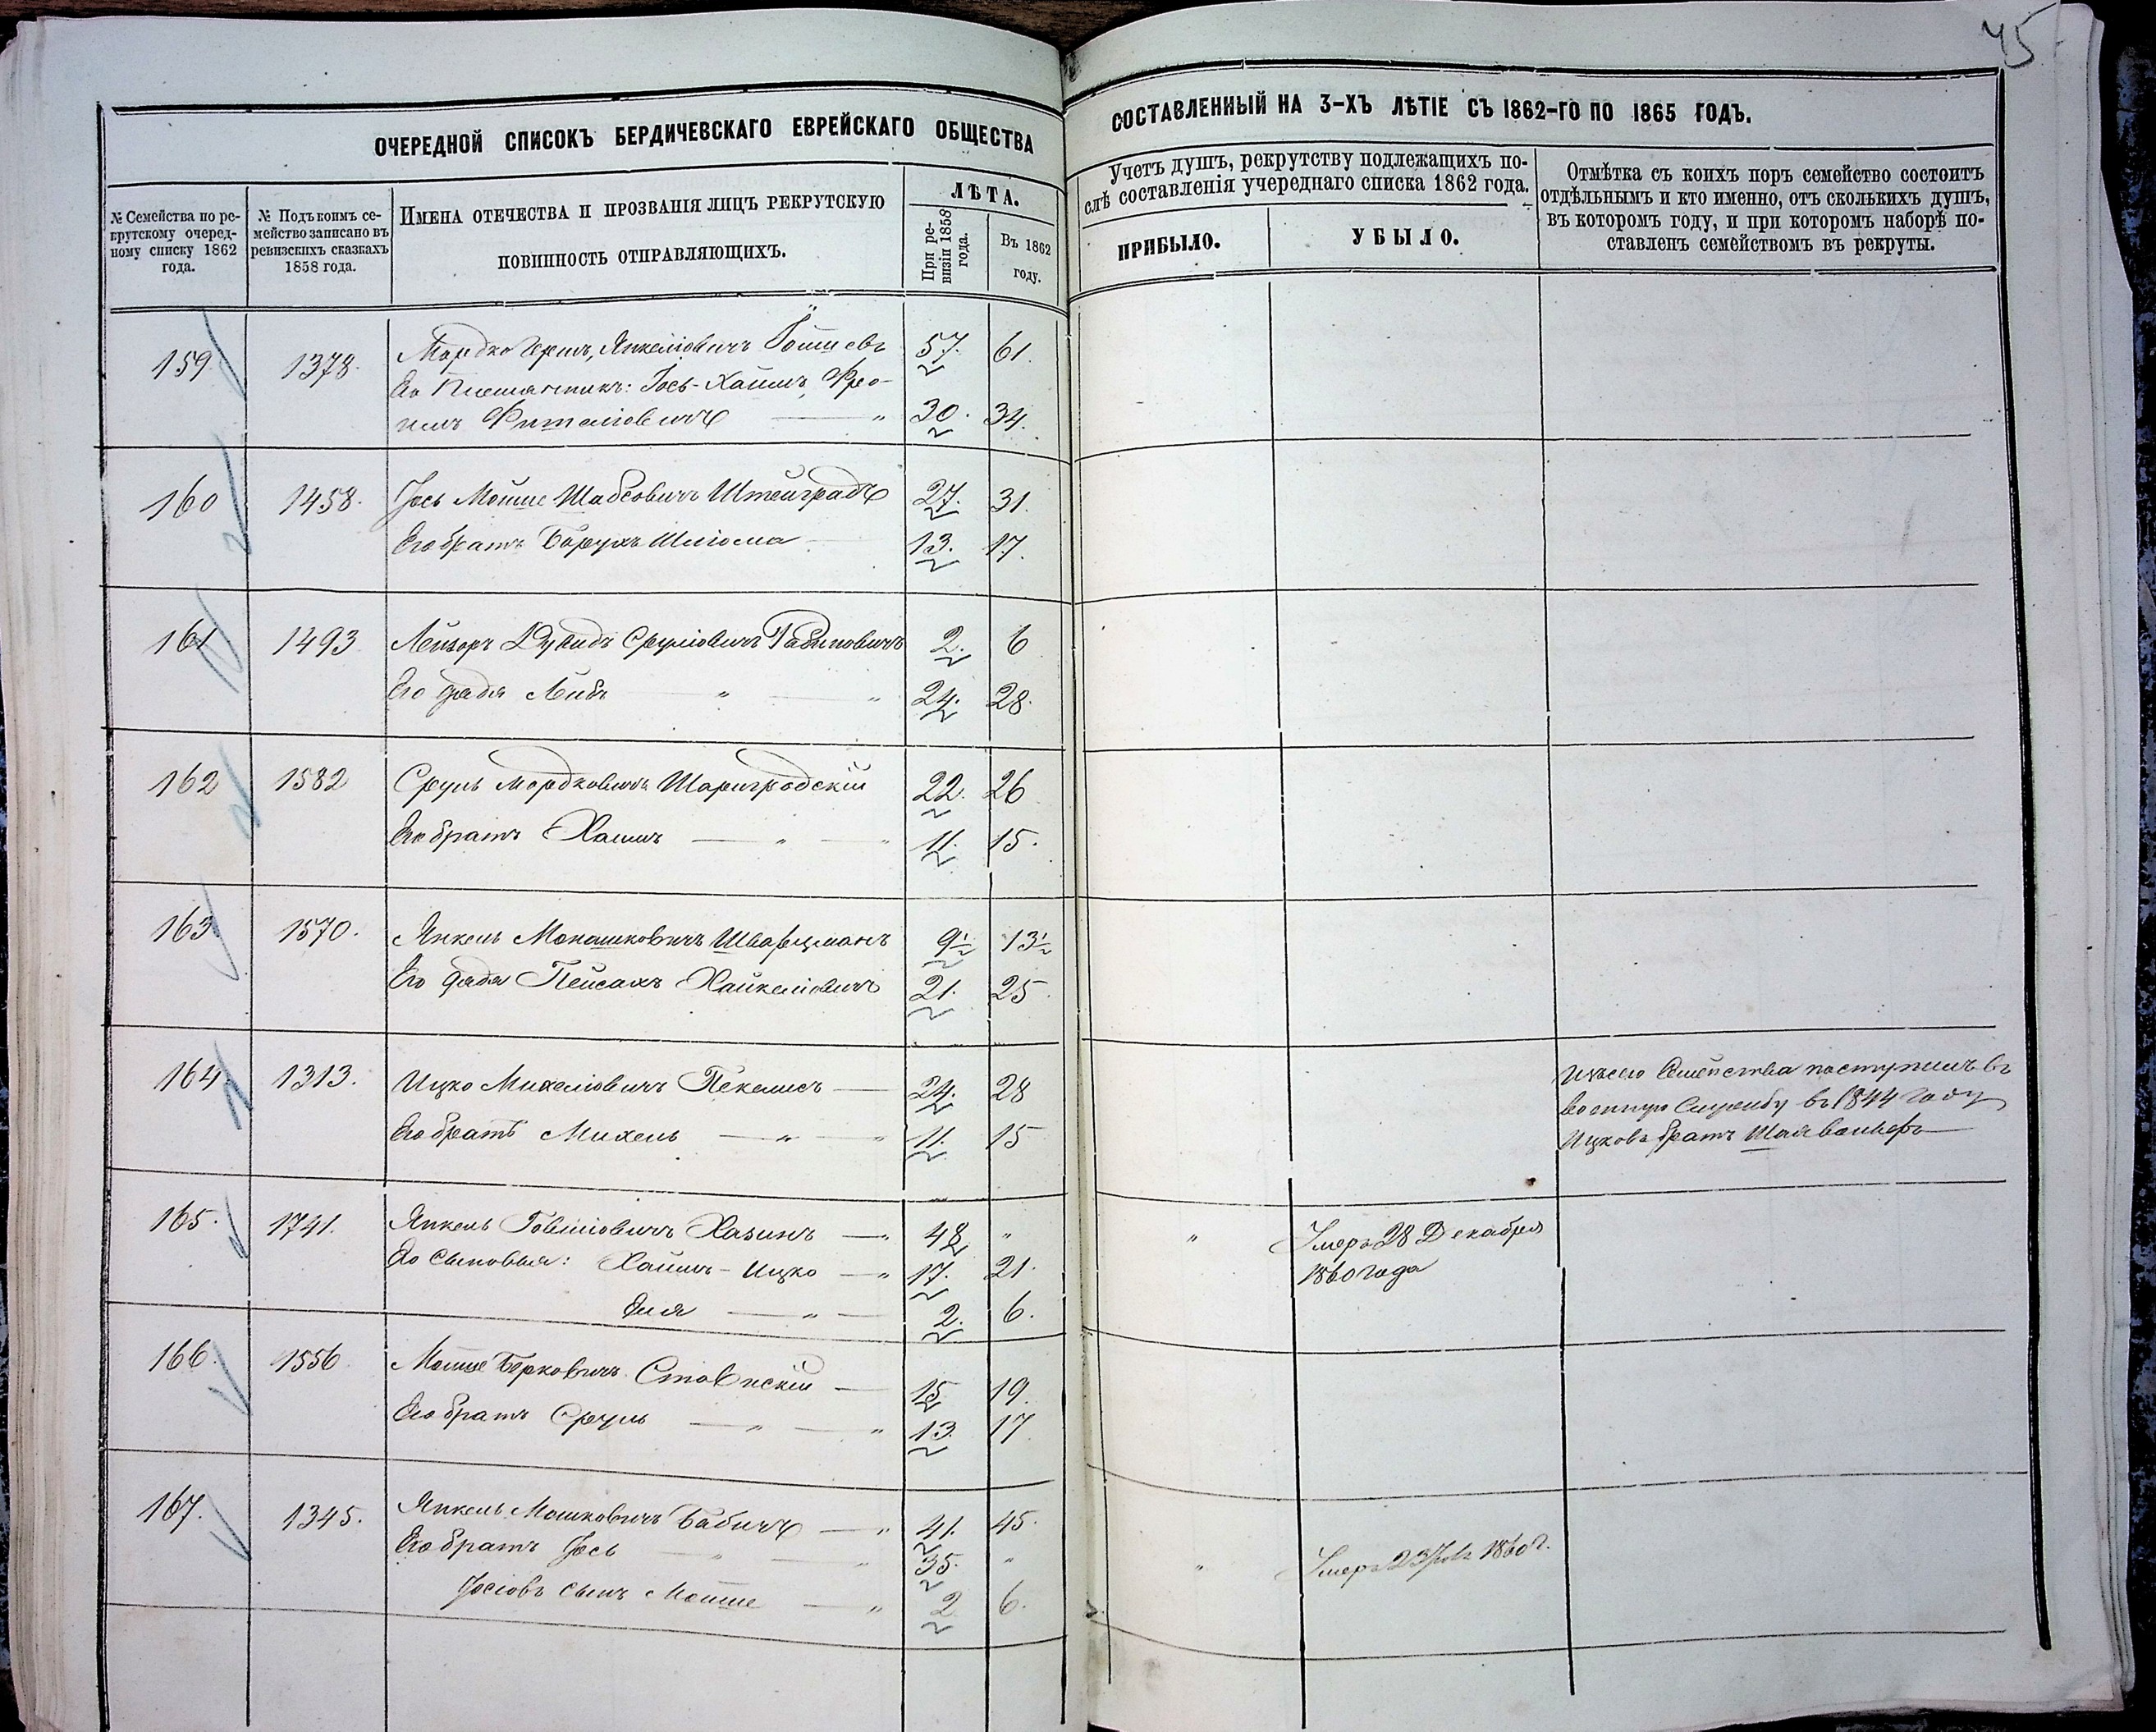 45
ОЧЕРЕДНОЙ СПИСОКЪ БЕРДИЧЕВСКАГО ЕВРЕЙСКАГО ОБЩЕСТВА
СОСТАВЛЕННЫЙ НА 3-ХЪ ЛѢТІЕ СЪ 1862-ГО ПО 1865 ГОДЪ.
№ Семейства по ре-
крутскому очеред-
ному списку 1862
года.
№ Подъ коимъ се-
мейство записано въ
ревизскихъ сказкахъ
1858 года.
ИМЕНА ОТЕЧЕСТВА И ПРОЗВАНІЯ ЛИЦЪ РЕКРУТСКУЮ
ПОВИННОСТЬ ОТПРАВЛЯЮЩИХЪ.
ЛѢТА.
При ре-
визіи 1858
года.
Въ 1862
году.
Учетъ душъ, рекрутству подлежащихъ по-
слѣ составленія учереднаго списка 1862 года.
ПРИБЫЛО.
УБЫЛО.
Отмѣтка съ коихъ поръ семейство состоитъ
отдѣльнымъ и кто именно, отъ сколькихъ душъ,
въ которомъ году, и при которомъ наборѣ по-
ставленъ семействомъ въ рекруты.
159 1378. Мордко Герш, Янкеліовичъ 57. 61.
Его Племянникъ: Іось-Хаимъ, Фро-
имъ " 30. 34.
160 1458. Іось Мойше Шабсовичъ Штейградъ 27. 31.
Его братъ Борухъ Шліома 13. 17.
161 1493 Лейзоръ Дувидъ Сруліовичъ Рабиновичъ 2. 6
Его дядя Лейбъ " " 24. 28.
162 1582 Сруль Мордковичъ Шаригродскій 22. 26
Его братъ Хаимъ " " 11. 15.
163. 1570. Янкель Монашковичъ Шварцманъ 9½ 13½
Его дядя Пейсахъ Хайкеліовичъ 21. 25.
164. 1313. Ицко Михеліовичъ Пекелисъ 24. 28
Его братъ Михель " " 11. 15
Изъ сего Семейства поступилъ въ
военную Службу въ 1844 Году
Ицковъ братъ
165. 1741. Янкель Хазинъ " 48 " "
Его сыновья: Хаимъ-Ицко " 17. 21.
Эля " 2. 6.
Умеръ 28 Декабря
1860 года
166. 1556 Мойше Берковичъ Ставискій 15 19.
Его братъ Сруль " " 13. 17
167. 1345. Янкель Мошковичъ Бабичъ " 41. 45.
Его братъ Іось " " 35. " "
Умеръ 23 1860 г.
Іосіовъ сынъ Мойше " 2 6.